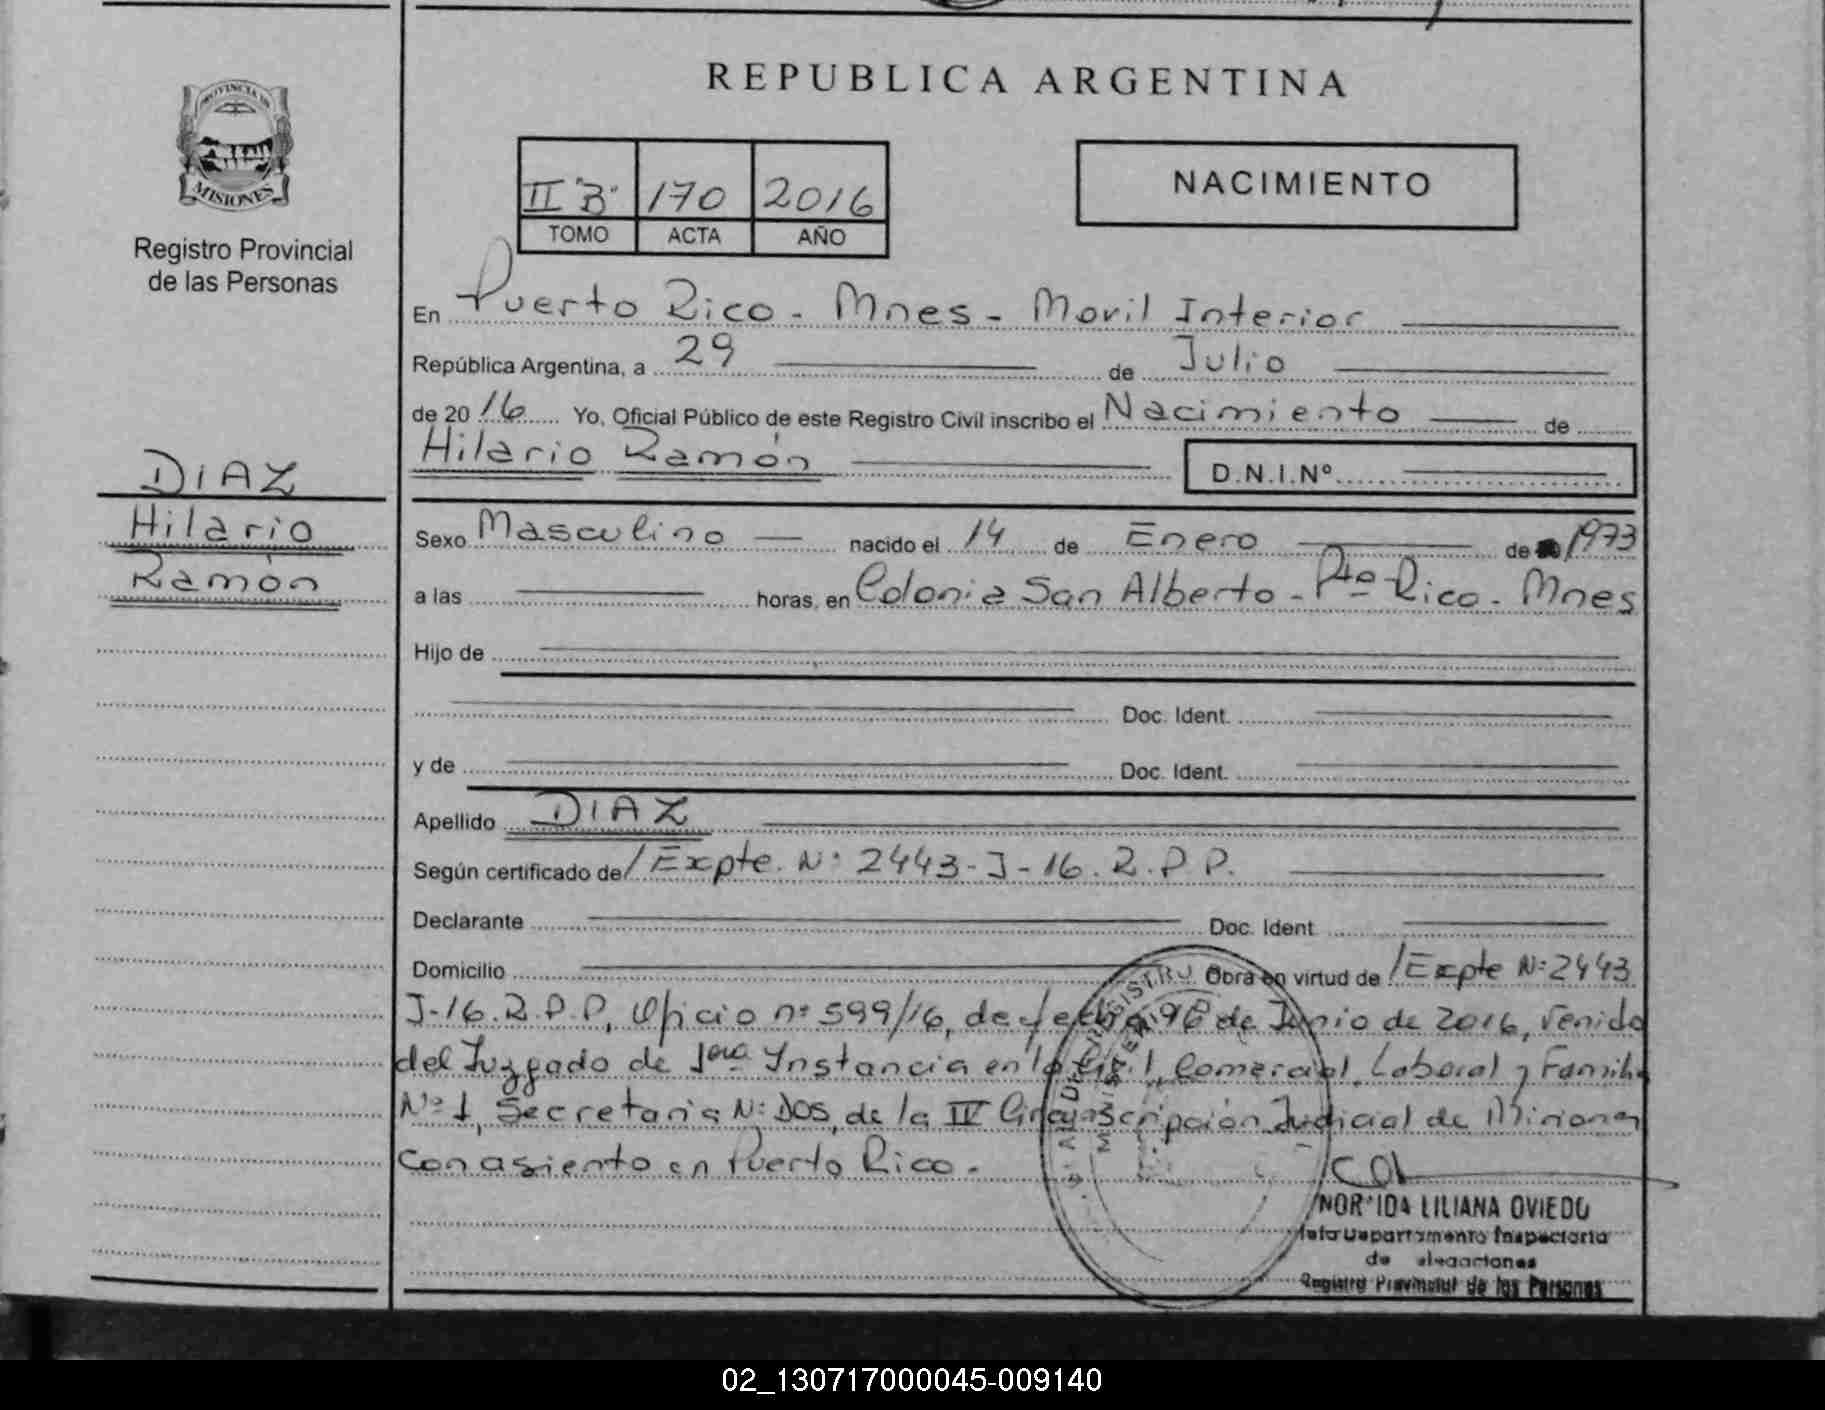 REPUBLICA ARGENTINA
PROVINCIA DE
MISIONES
Registro Provincial
de las Personas
II "B" 170 2016
TOMO ACTA AÑO
NACIMIENTO
En Puerto Rico - Mnes - Movil Interior
República Argentina, a 29 de Julio
de 2016 Yo, Oficial Público de este Registro Civil inscribo el Nacimiento de
Hilario Ramón D.N.I.Nº
DIAZ
Hilario
Ramón
Sexo Masculino nacido el 14 de Enero de 1973
a las horas, en Colonia San Alberto - Pto Rico - Mnes
Hijo de
Doc. Ident.
y de Doc. Ident.
Apellido DIAZ
Según certificado de/Expte. Nº 2443-J-16.R.P.P.
Declarante Doc. Ident.
Domicilio Obra en virtud de /Expte Nº 2443
J-16.R.P.P, Oficio nº 599/16, de fecha de Junio de 2016, venido
del Juzgado de 1era Instancia en lo Civil, Comercial, Laboral y Familia
Nº 1, Secretaria Nº DOS, de la IV Circunscripción Judicial de Misiones
con asiento en Puerto Rico.
LILIANA OVIEDO
Departamento Inspectoria
de
Registro Provincial de las Personas
02_130717000045-009140